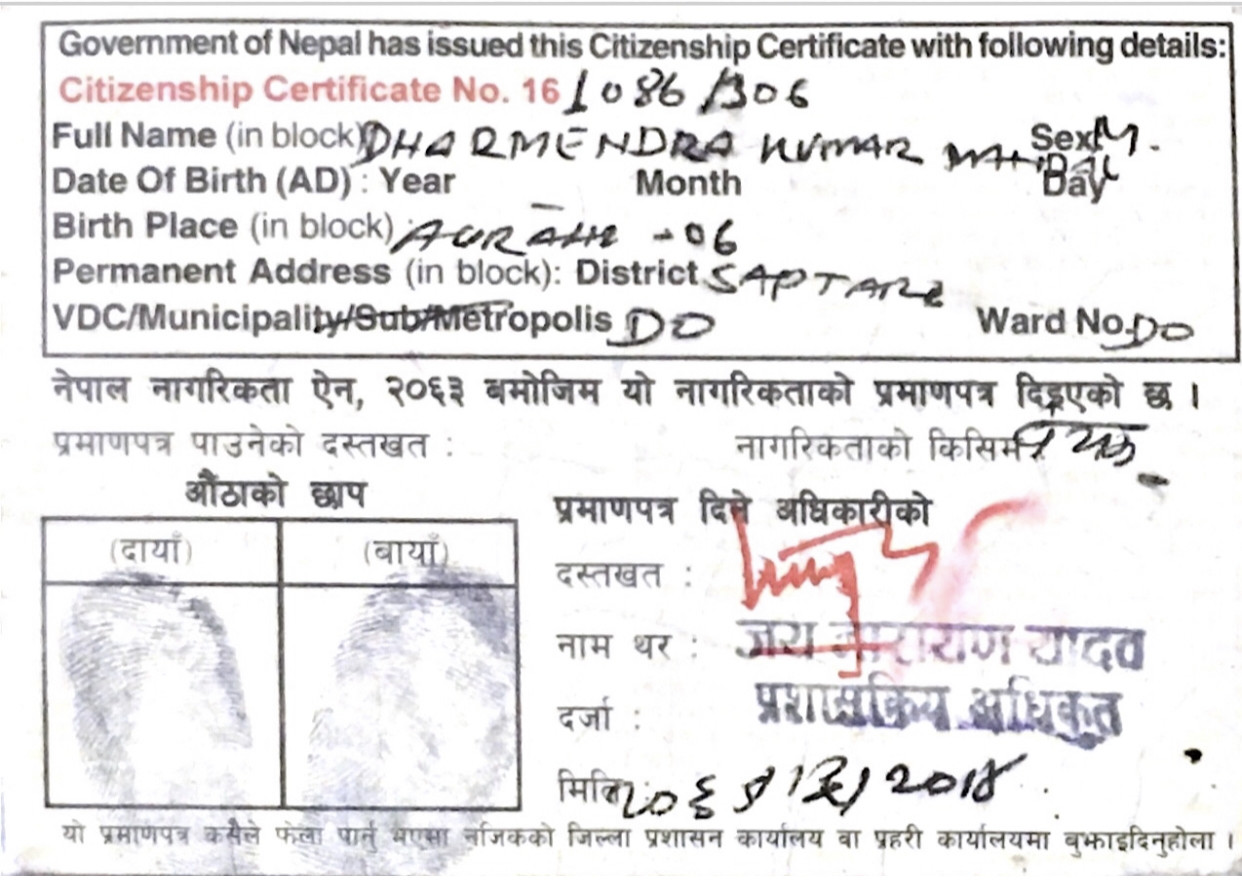 Government of Nepal has issued this Citizenship Certificate with following details:
Citizenship Certificate No. 161086/306
Full Name (in block) DHARMENDRA KUMAR Sex M.
Date Of Birth (AD) : Year Month Day
Birth Place (in block) : AURAHI - 06
Permanent Address (in block): District SAPTARI
VDC/Municipality/Sub/Metropolis DO Ward No. DO
नेपाल नागरिकता ऐन, २०६३ बमोजिम यो नागरिकताको प्रमाणपत्र दिइएको छ ।
प्रमाणपत्र पाउनेको दस्तखत : नागरिकताको किसिम
औंठाको छाप
(दायाँ) (बायाँ)
प्रमाणपत्र दिने अधिकारीको
दस्तखत :
नाम थर : जय नारायण यादव
दर्जा : प्रशासकिय अधिकृत
मिति
यो प्रमाणपत्र कसैले फेला पार्नु भएमा नजिकको जिल्ला प्रशासन कार्यालय वा प्रहरी कार्यालयमा बुझाइदिनुहोला ।